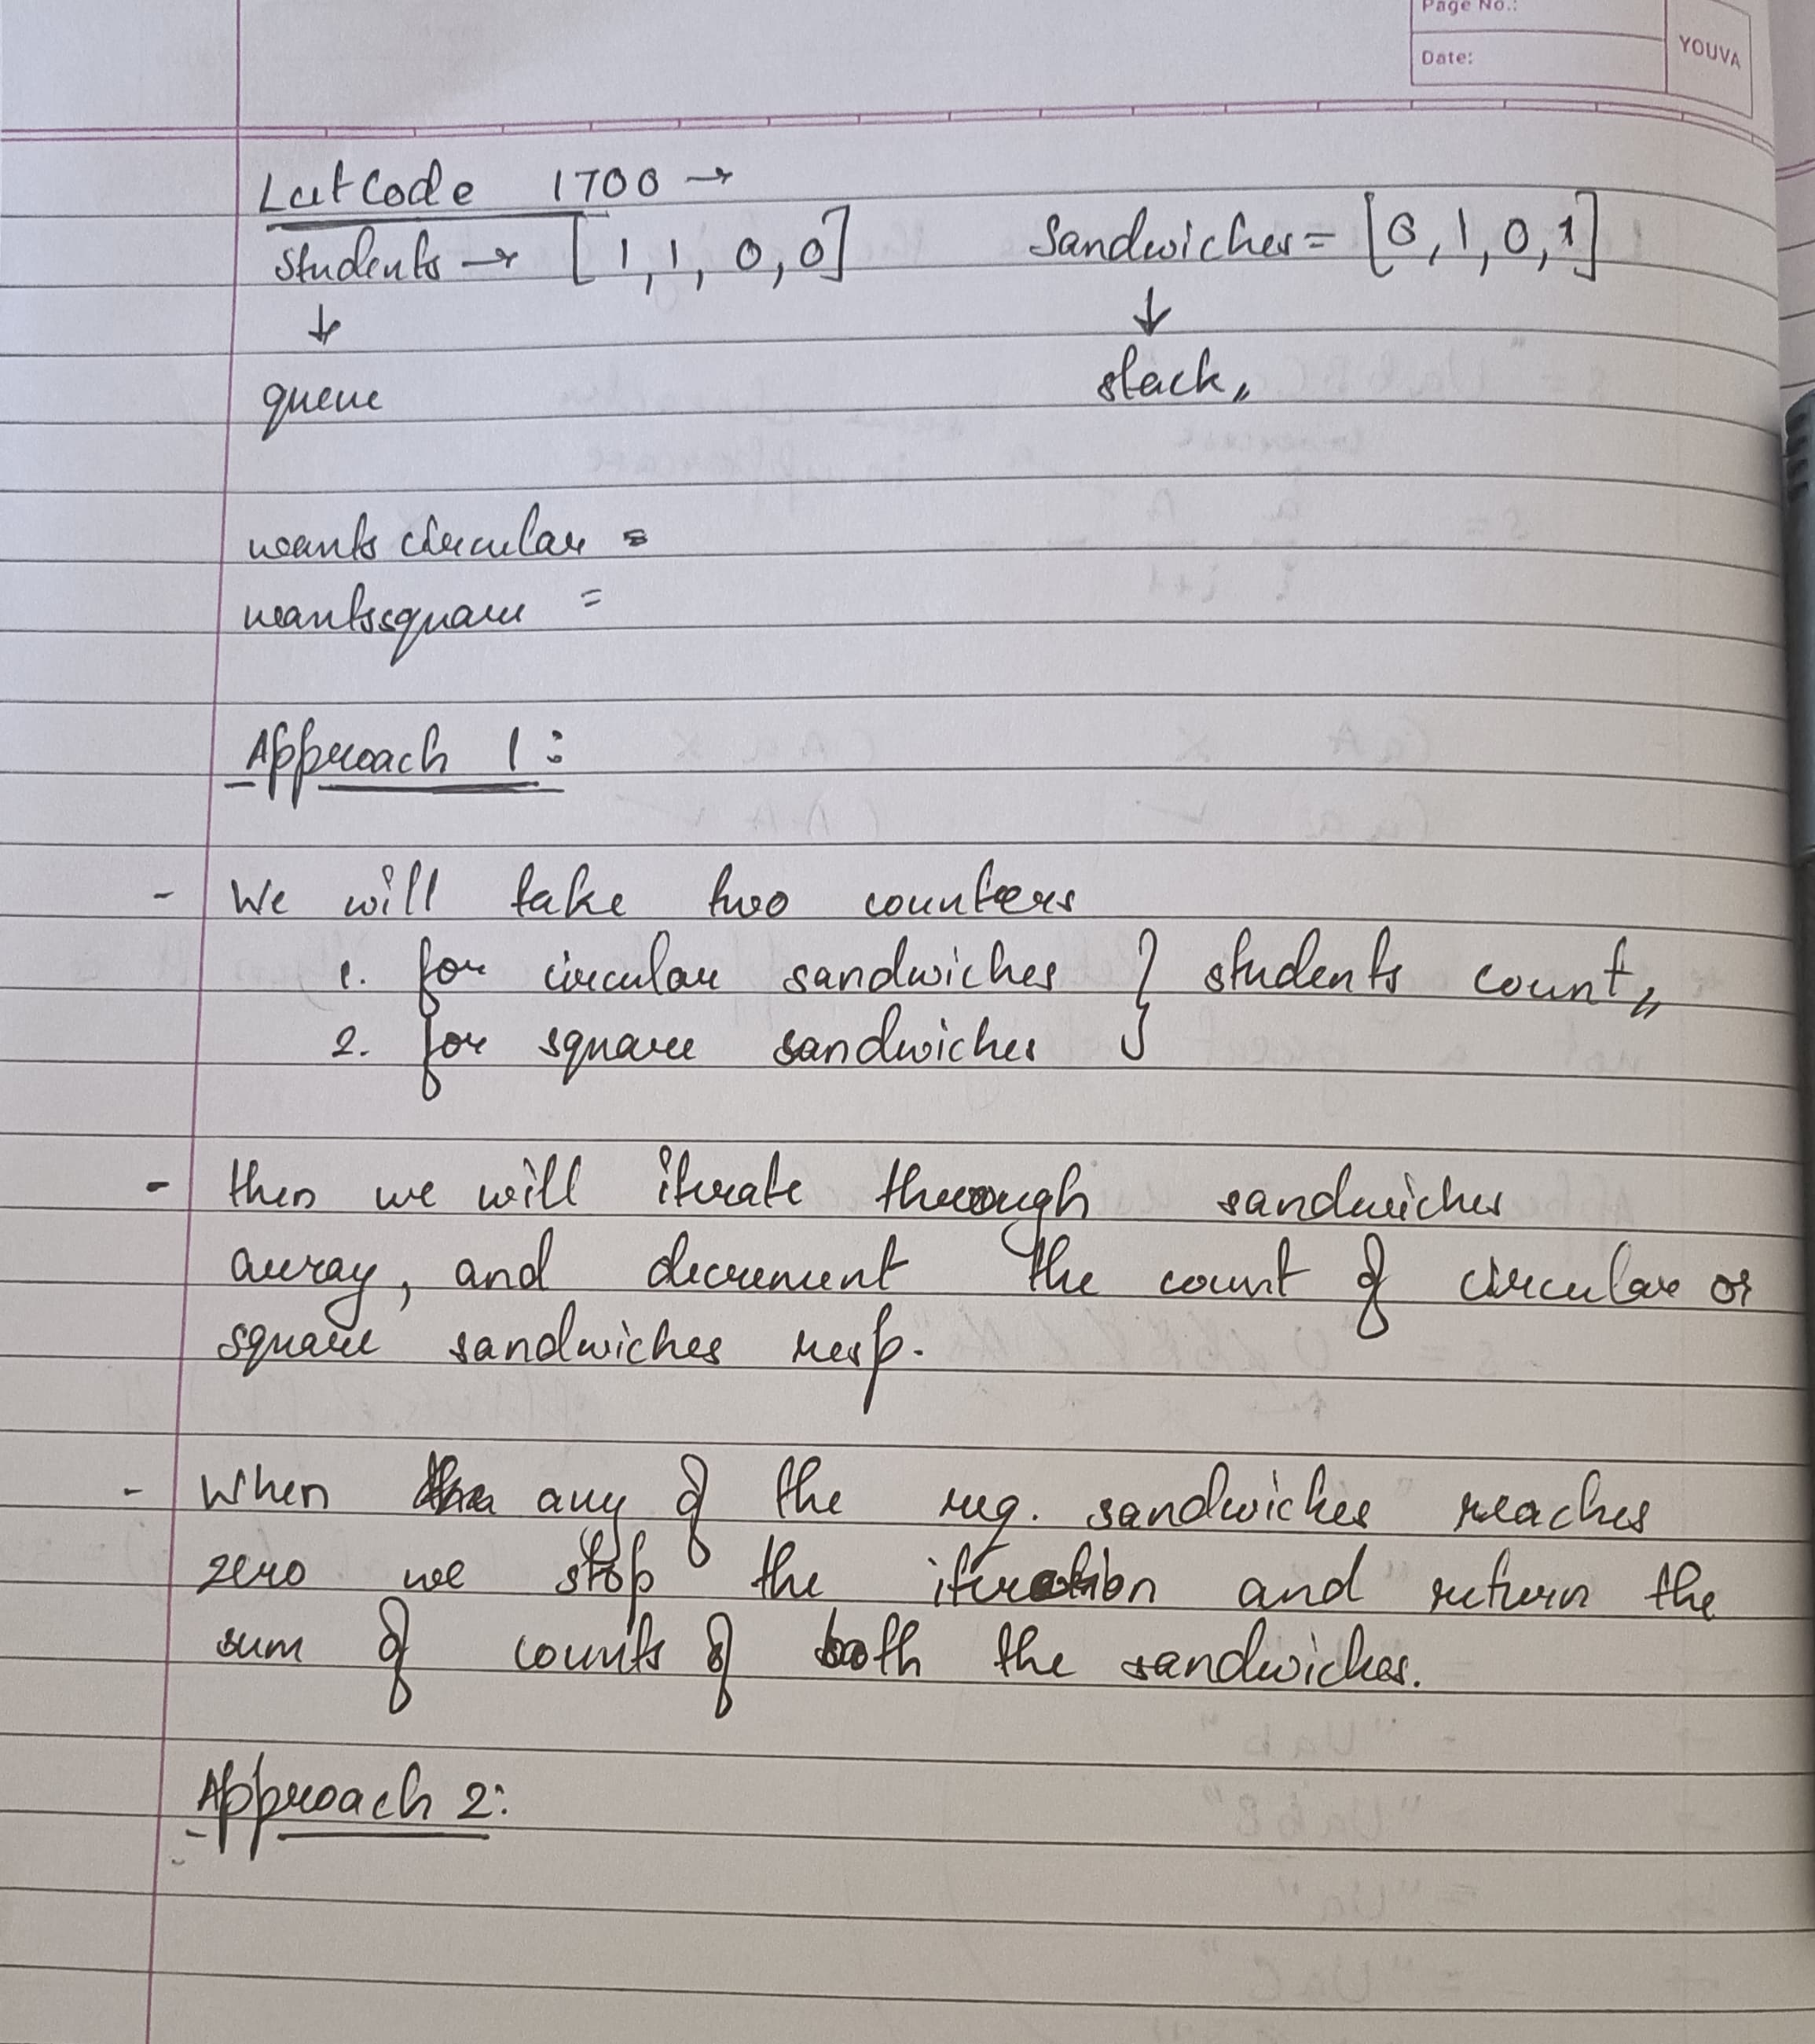 Page No.:
Date:
YOUVA
LeetCode 1700 →
students → [1,1,0,0] Sandwiches = [0,1,0,1]
↓ ↓
queue stack,,
wants circular =
wantssquare =
Approach 1:
- We will take two counters
1. for circular sandwiches } students count,,
2. for square sandwiches
- then we will iterate through sandwiches
array, and decrement the count of circular or
square sandwiches resp.
- When any of the req. sandwiches reaches
zero we stop the iteration and return the
sum of counts of both the sandwiches.
Approach 2: